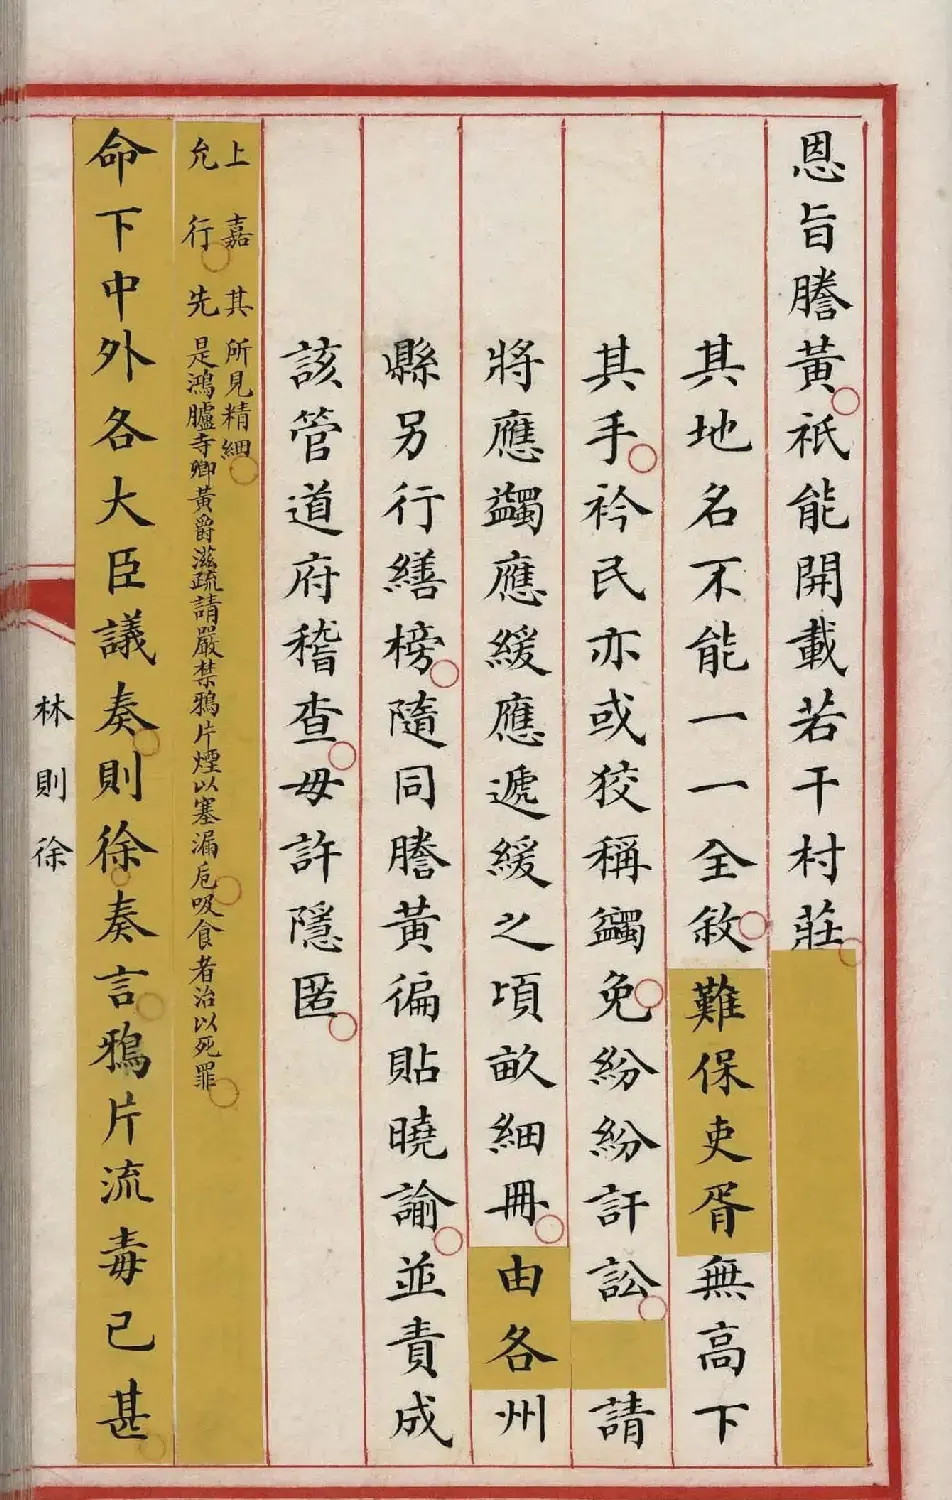 恩旨謄黃祇能開載若干村莊
其地名不能一一全敘難保吏胥無高下
其手衿民亦或狡稱蠲免紛紛訐訟請
將應蠲應緩應遞緩之頃畝細冊由各州
縣另行繕榜隨同謄黃徧貼曉諭並責成
該管道府稽查毋許隱匿
上嘉其所見精細
允行先是鴻臚寺卿黃爵滋疏請嚴禁鴉片煙以塞漏卮吸食者治以死罪
命下中外各大臣議奏則徐奏言鴉片流毒已甚
林則徐